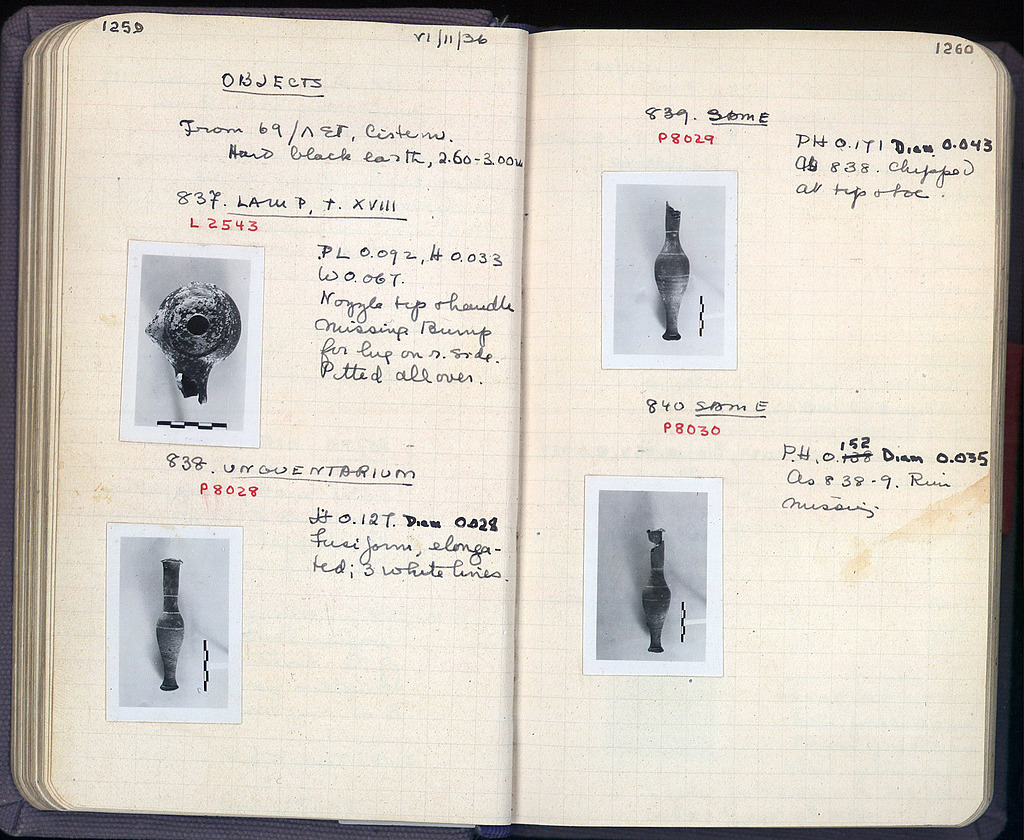 1259
VI/11/36
OBJECTS
From 69/ΛΣΤ, Cistern.
Hard black earth, 2.60-3.00m
837. LAMP, T. XVIII
L 2543
PL 0.092, H 0.033
W 0.067.
Nozzle tip & handle
missing Bump
for lug on r. side.
Pitted all over.
838. UNGUENTARIUM
P8028
H 0.127. Diam 0.028
Fusiform, elonga-
ted; 3 white lines.
1260
839. SAME
P8029
PH 0.171 Diam. 0.043
As 838. Chipped
at lip & toe.
840 SAME
P8030
P.H. 0.152 Diam 0.035
As 838-9. Rim
missing